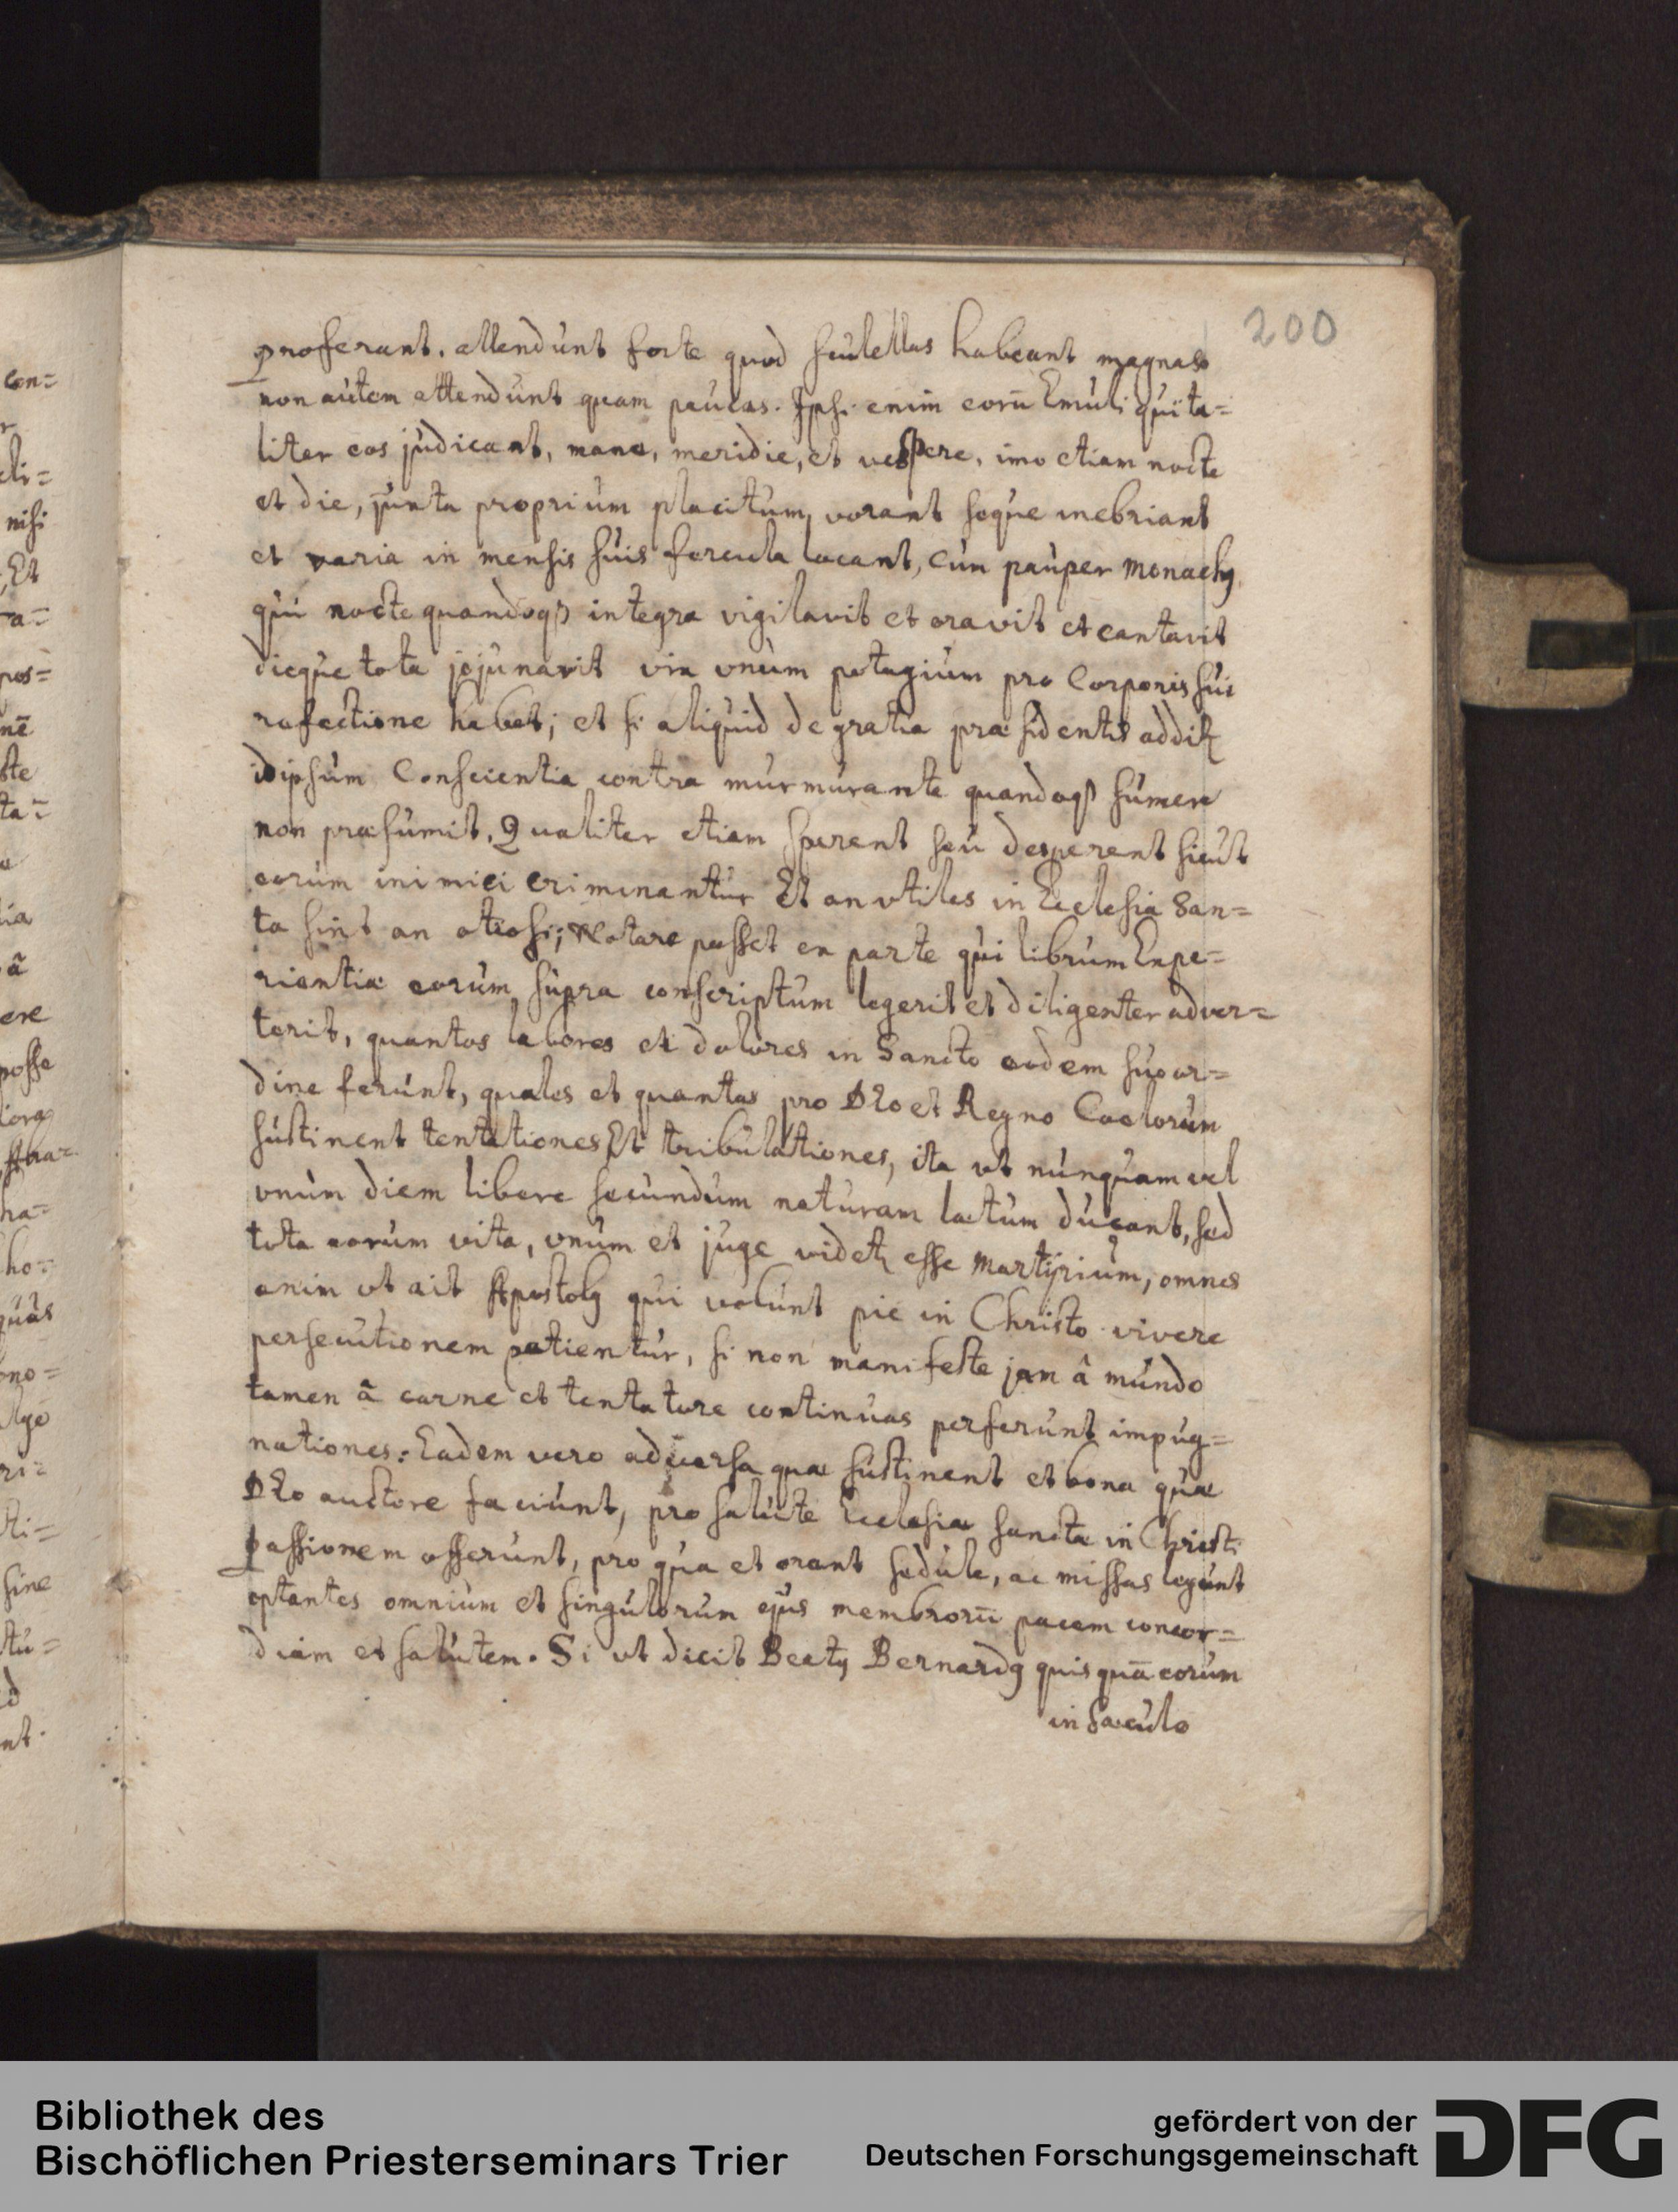 200
proferant. attendunt forte quod scutellas habeant magnas
non autem attendunt quam paucas. Ipsi enim corū Emuli qui ta=
liter eos judicant, mane, meridie, et vespere, imo etiam nocte
et die, juxta proprium placitum, vorant seque inebriant
et varia in mensis suis fercula locant, cum pauper monachꝯ
qui nocte quandoqꝫ integra vigilavit et oravit et cantavit
dieque tota jejunavit vix vnum potagium pro Corporis sui
refectione habet; et si aliquid de gratia præsidentis addit̄
idipsum Conscientia contra murmurante quandoqꝫ sumere
non præsumit. Qualiter etiam sperent seu desperent sicut
eorum inimici criminantur Et an vtiles in Ecclesia San=
ta sint an otiosi; Notare posset ex parte qui librum Expe=
rientiæ eorum supra conscriptum legerit et diligenter adver=
terit, quantos labores et dolores in Sancto eodem suo or=
dine ferunt, quales et quantas pro Deo et Regno Caelorum
sustinent tentationes Et tribulationes, ita vt nunquam vel
vnum diem libere secundum naturam lætum ducant, sed
tota eorum vita, vnum et juge videt̄ esse Martÿrium, omnes
enim vt ait Apostolꝯ qui volunt pie in Christo vivere
persecutionem patientur, si non manifeste jam â mundo
tamen ā carne et tentatore continuas perferunt impug=
nationes: Eadem vero adversa quæ sustinent et bona quæ
Deo auctore faciunt, pro salute Ecclesiæ sanctæ in Christi
passionem offerunt, pro qua et orant sedule, ac missas legunt
optantes omnium et singulorum ejus membrorū pacem concor=
diam et salutem. Si vt dicit Beatꝯ Bernardꝯ quisquā eorum
in sæculo
con=
r
eli=
nisi
Et
ra=
pos=
nē
ste
ta=
a
ia
ā
ere
posse
ha=
ho=
quas
ono=
ri=
sti=
sine
tu=
d
nt.
Bibliothek des
Bischöflichen Priesterseminars Trier
gefördert von der
Deutschen Forschungsgemeinschaft
DFG